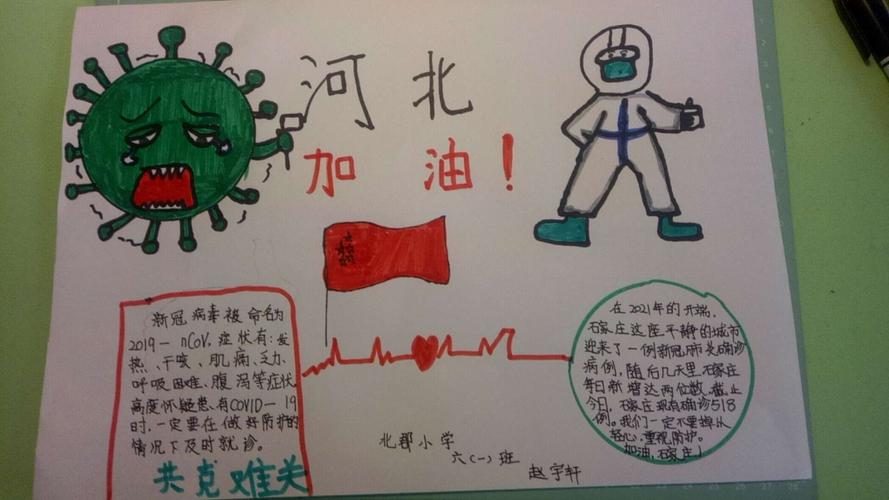 河北
加油!
新冠病毒被命名为
2019-nCoV.症状有:发
热、干咳、肌痛、乏力、
呼吸困难、腹泻等症状,
高度怀疑患有COVID-19
时,一定要在做好防护的
情况下及时就诊。
共克难关
在2021年的开端,
石家庄这座平静的城市
迎来了一例新冠肺炎确诊
病例,随后几天里石家庄
每日新增达两位数,截止
今日,石家庄现有确诊518
例。我们一定不要掉从
轻心,重视防护。
加油,石家庄!
北郡小学
六(一)班
赵宇轩